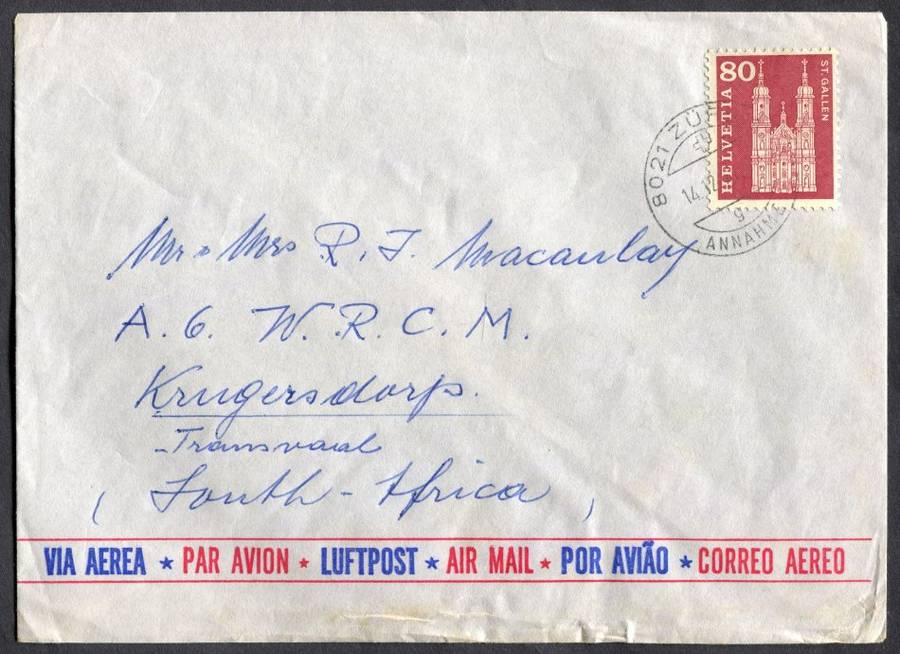 80
ST. GALLEN
HELVETIA
8021 ZÜ
14.12
9
ANNAHME
Mr & Mrs R. J. Macaulay
A. 6. W. R. C. M.
Krugersdorp.
Transvaal
( South-Africa )
VIA AEREA * PAR AVION * LUFTPOST * AIR MAIL * POR AVIÃO * CORREO AEREO